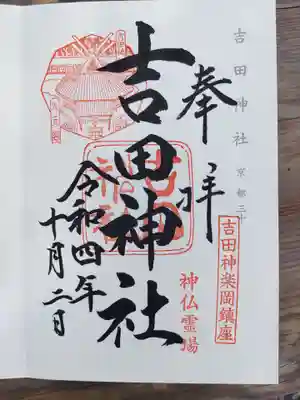 吉田神社 京都三十
奉拝
吉田神楽岡鎮座
神仏霊場
吉田神社
令和四年
十月二日